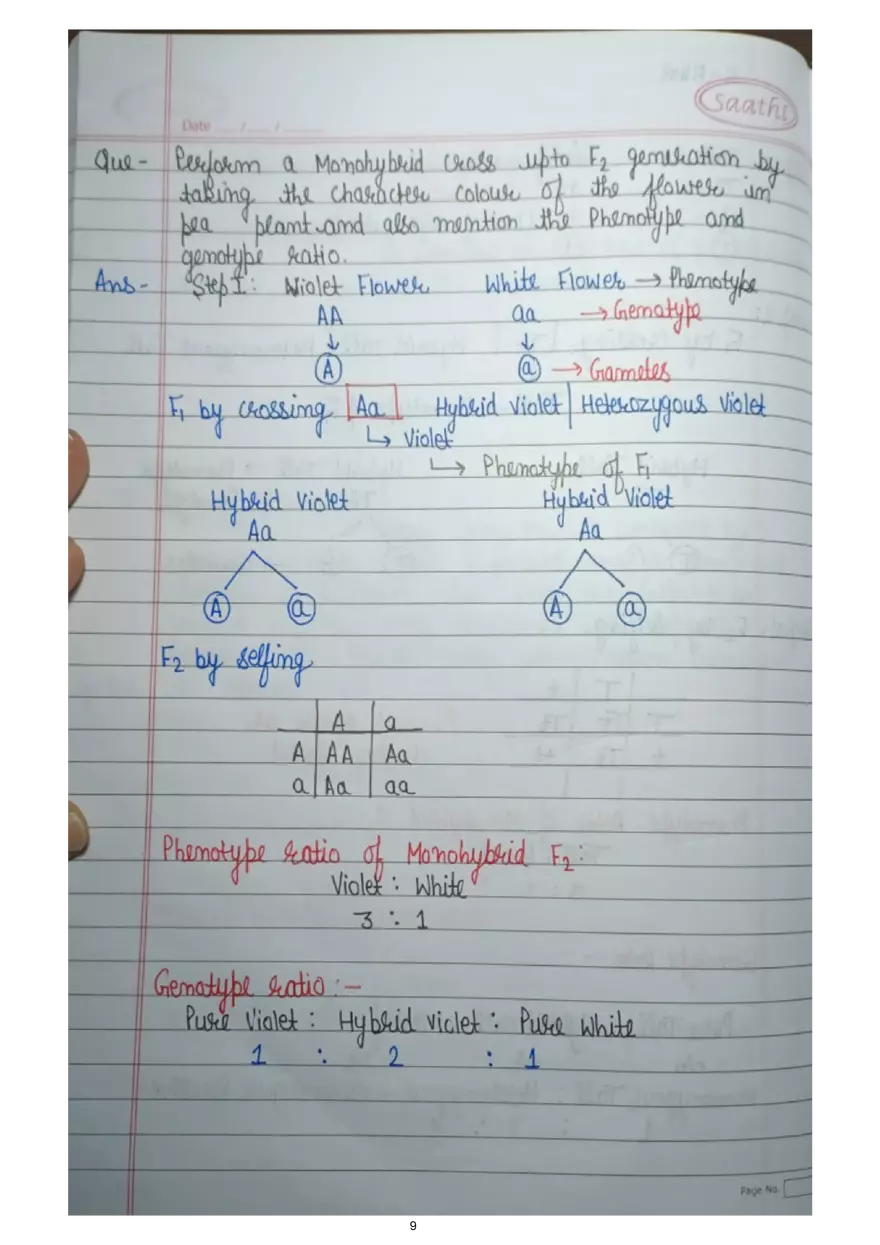 saathi
Date ___/___/______
Que - Perform a Monohybrid cross upto F₂ generation by
taking the character colour of the flower in
pea plant and also mention the Phenotype and
genotype ratio.
Ans - Step I: Violet Flower White Flower → Phenotype
AA aa → Genotype
↓ ↓
A a → Gametes
F₁ by crossing Aa Hybrid Violet | Heterozygous Violet
↳ Violet
↳ Phenotype of F₁
Hybrid Violet Hybrid Violet
Aa Aa
A a A a
F₂ by selfing
A a
A AA Aa
a Aa aa
Phenotype ratio of Monohybrid F₂:
Violet : White
3 : 1
Genotype ratio :-
Pure Violet : Hybrid violet : Pure White
1 : 2 : 1
Page No.
9